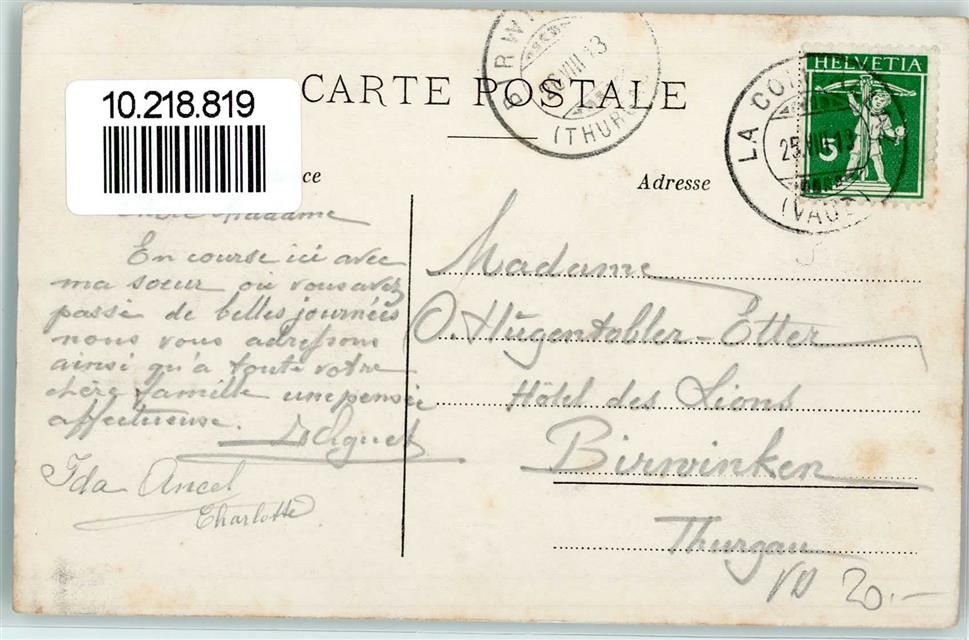 10.218.819
CARTE POSTALE
(THURG
26.VIII.13
HELVETIA
5
LA CO
25.VIII.13
(VAUD)
ce
Adresse
Madame
En course ici avec
ma soeur où vous avez
passé de belles journées
nous vous adressons
ainsi qu'à toute votre
chère famille une pensée
affectueuse.
Ida Ancel
Charlotte
Madame
O. Hugentobler-Etter
Hôtel des Lions
Birwinken
Thurgau
VD 20.-